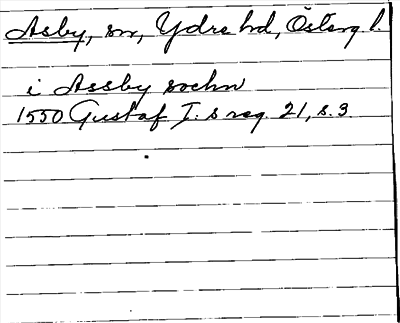 Asby, sn, Ydre hd, Österg. l.
i Assby sochn
1550 Gustaf I:s reg. 21, s. 3.